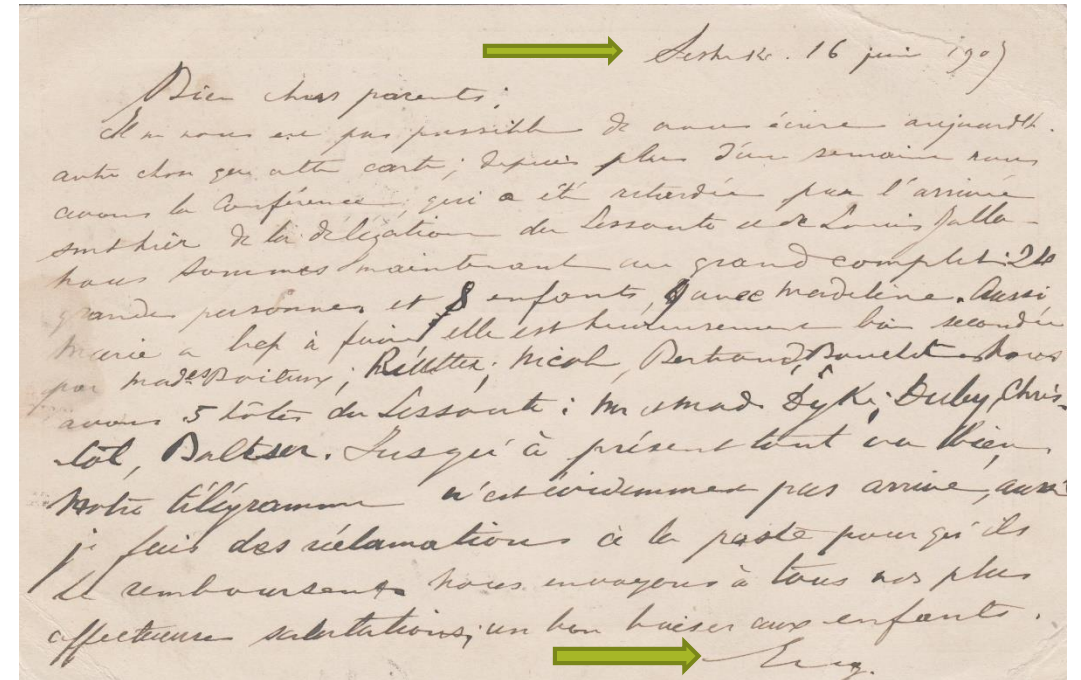 Sesheke. 16 juin 190
Bien chers parents;
Il ne nous est pas possible de vous écrire aujourd'h.
autre chose que cette carte; depuis plus d'une semaine nous
avons la Conférence qui a été retardée par l'arrivée
hier de la délégation du Lessouto et de Louis Jalla
nous sommes maintenant au grand complet: 24
grandes personnes et 8 enfants, 9 avec Madeleine. Aussi
Marie a à faire, elle est heureusement bien secondée
par Mad.es Boiteux; Nicole, Bertrand, Bouchet nous
avons 5 hôtes du Lessouto: Mr et Mad Dyke; Duby, Chris-
tol, Baltzer. Jusqu'à présent tout va bien
Notre télégramme n'est évidemment pas arrivé, aussi
je fais des réclamations à la poste pour qu'ils
le remboursent. Nous envoyons à tous nos plus
affectueuses salutations; un bon baiser aux enfants.
Eug.